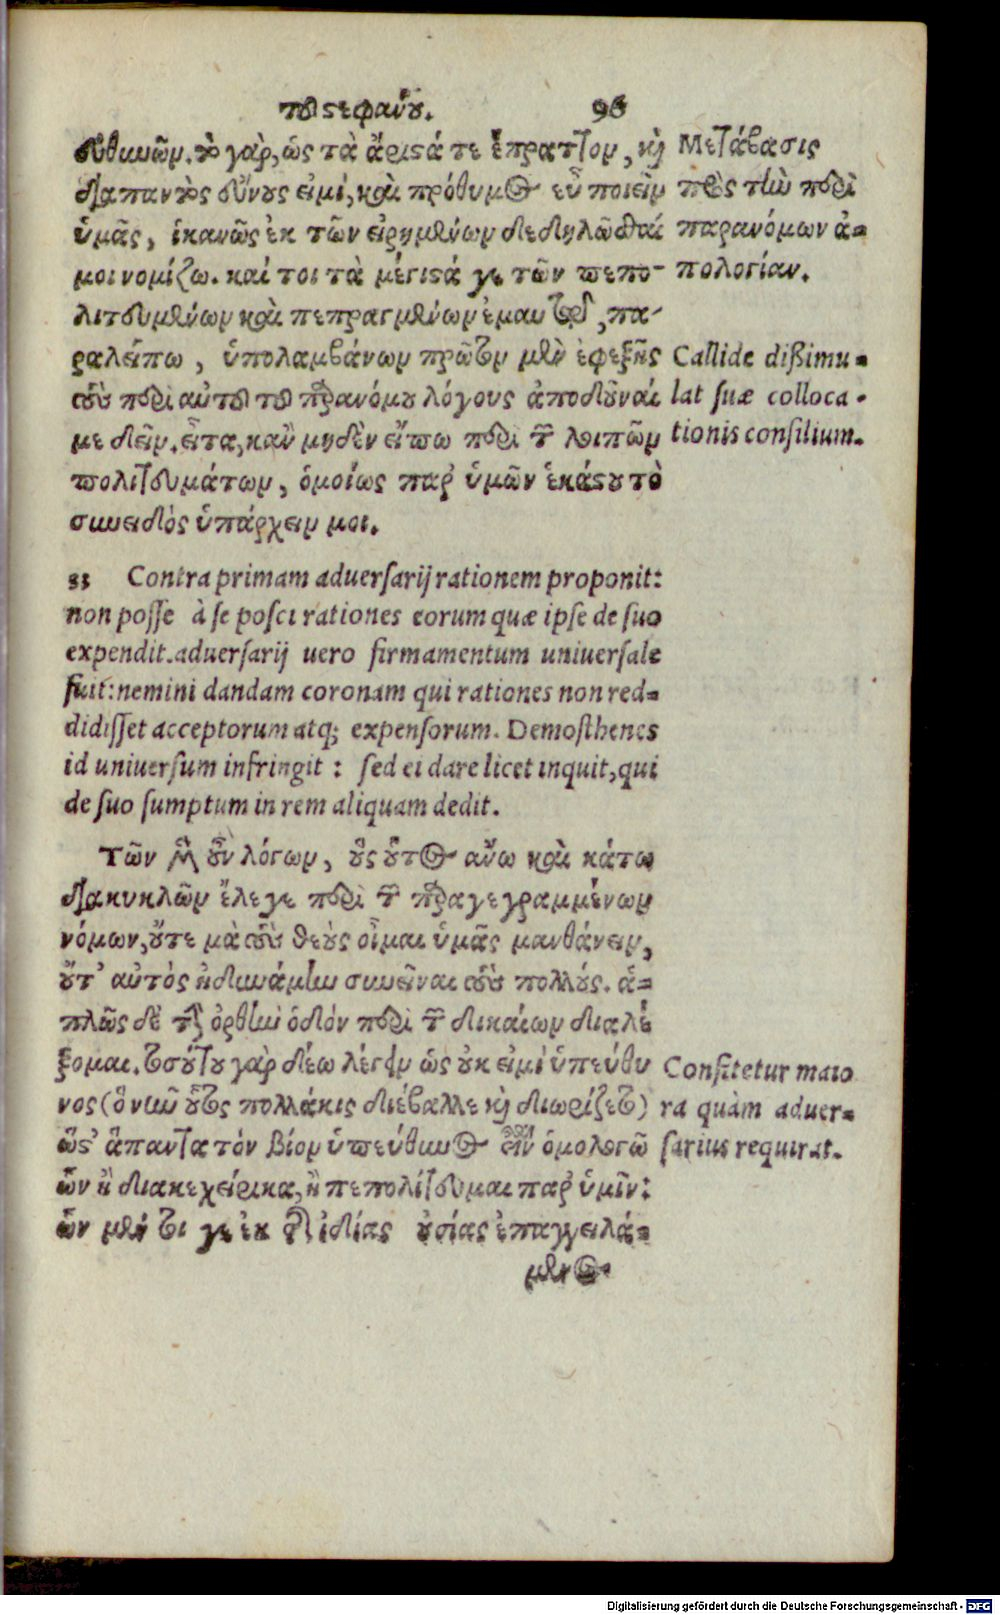 τοῦ στεφάνου. 96
ευθυνῶν. τὸ γὰρ, ὡς τὰ ἄριστά τε ἔπραττον, καὶ
διαπαντὸς εὔνους εἰμί, καὶ πρόθυμος εὖ ποιεῖν
ὑμᾶς, ἱκανῶς ἐκ τῶν εἰρημένων δεδηλῶσθαί
μοι νομίζω. καί τοι τὰ μέγιστά γε τῶν πεπο-
λιτευμένων καὶ πεπραγμένων ἐμαυτῷ, πα-
ραλείπω, ὑπολαμβάνων πρῶτον μὲν ἐφεξῆς
τοὺς περὶ αὐτοῦ τοῦ παρανόμου λόγους ἀποδοῦναί
με δεῖν. εἶτα, κἂν μηδὲν εἴπω περὶ τῶν λοιπῶν
πολιτευμάτων, ὁμοίως παρ' ὑμῶν ἑκάστου τὸ
συνειδὸς ὑπάρχειν μοι.
Μετάβασις
πρὸς τὴν περὶ
παρανόμων ἀ=
πολογίαν.
Callide dißimu=
lat suæ colloca-
tionis consilium.
33 Contra primam aduersarij rationem proponit:
non posse à se posci rationes eorum quæ ipse de suo
expendit. aduersarij uero firmamentum uniuersale
fuit: nemini dandam coronam qui rationes non red=
didisset acceptorum atq; expensorum. Demosthenes
id uniuersum infringit: sed ei dare licet inquit, qui
de suo sumptum in rem aliquam dedit.
Τῶν μὲν οὖν λόγων, οὓς οὗτος ἄνω καὶ κάτω
διακυκλῶν ἔλεγε περὶ τῶν παραγεγραμμένων
νόμων, οὔτε μὰ τοὺς θεοὺς οἶμαι ὑμᾶς μανθάνειν,
οὔτ' αὐτὸς ἠδυνάμην συνεῖναι τοὺς πολλούς. ἁ=
πλῶς δὲ τὴν ὀρθὴν ὁδὸν περὶ τῶν δικαίων διαλέ
ξομαι. τοσούτου γὰρ δέω λέγειν ὡς οὐκ εἰμὶ ὑπεύθυ
νος (ὃ νῦν οὗτος πολλάκις διέβαλλε καὶ διωρίζετο)
ὥσθ' ἅπαντα τὸν βίον ὑπεύθυνος εἶναι ὁμολογῶ
ὧν ἢ διακεχείρικα, ἢ πεπολίτευμαι παρ' ὑμῖν:
ὧν μέν τοι γε ἐκ τῆς ἰδίας οὐσίας ἐπαγγειλά=
μενος
Confitetur maio
ra quàm aduer=
sarius requirat.
Digitalisierung gefördert durch die Deutsche Forschungsgemeinschaft - DFG